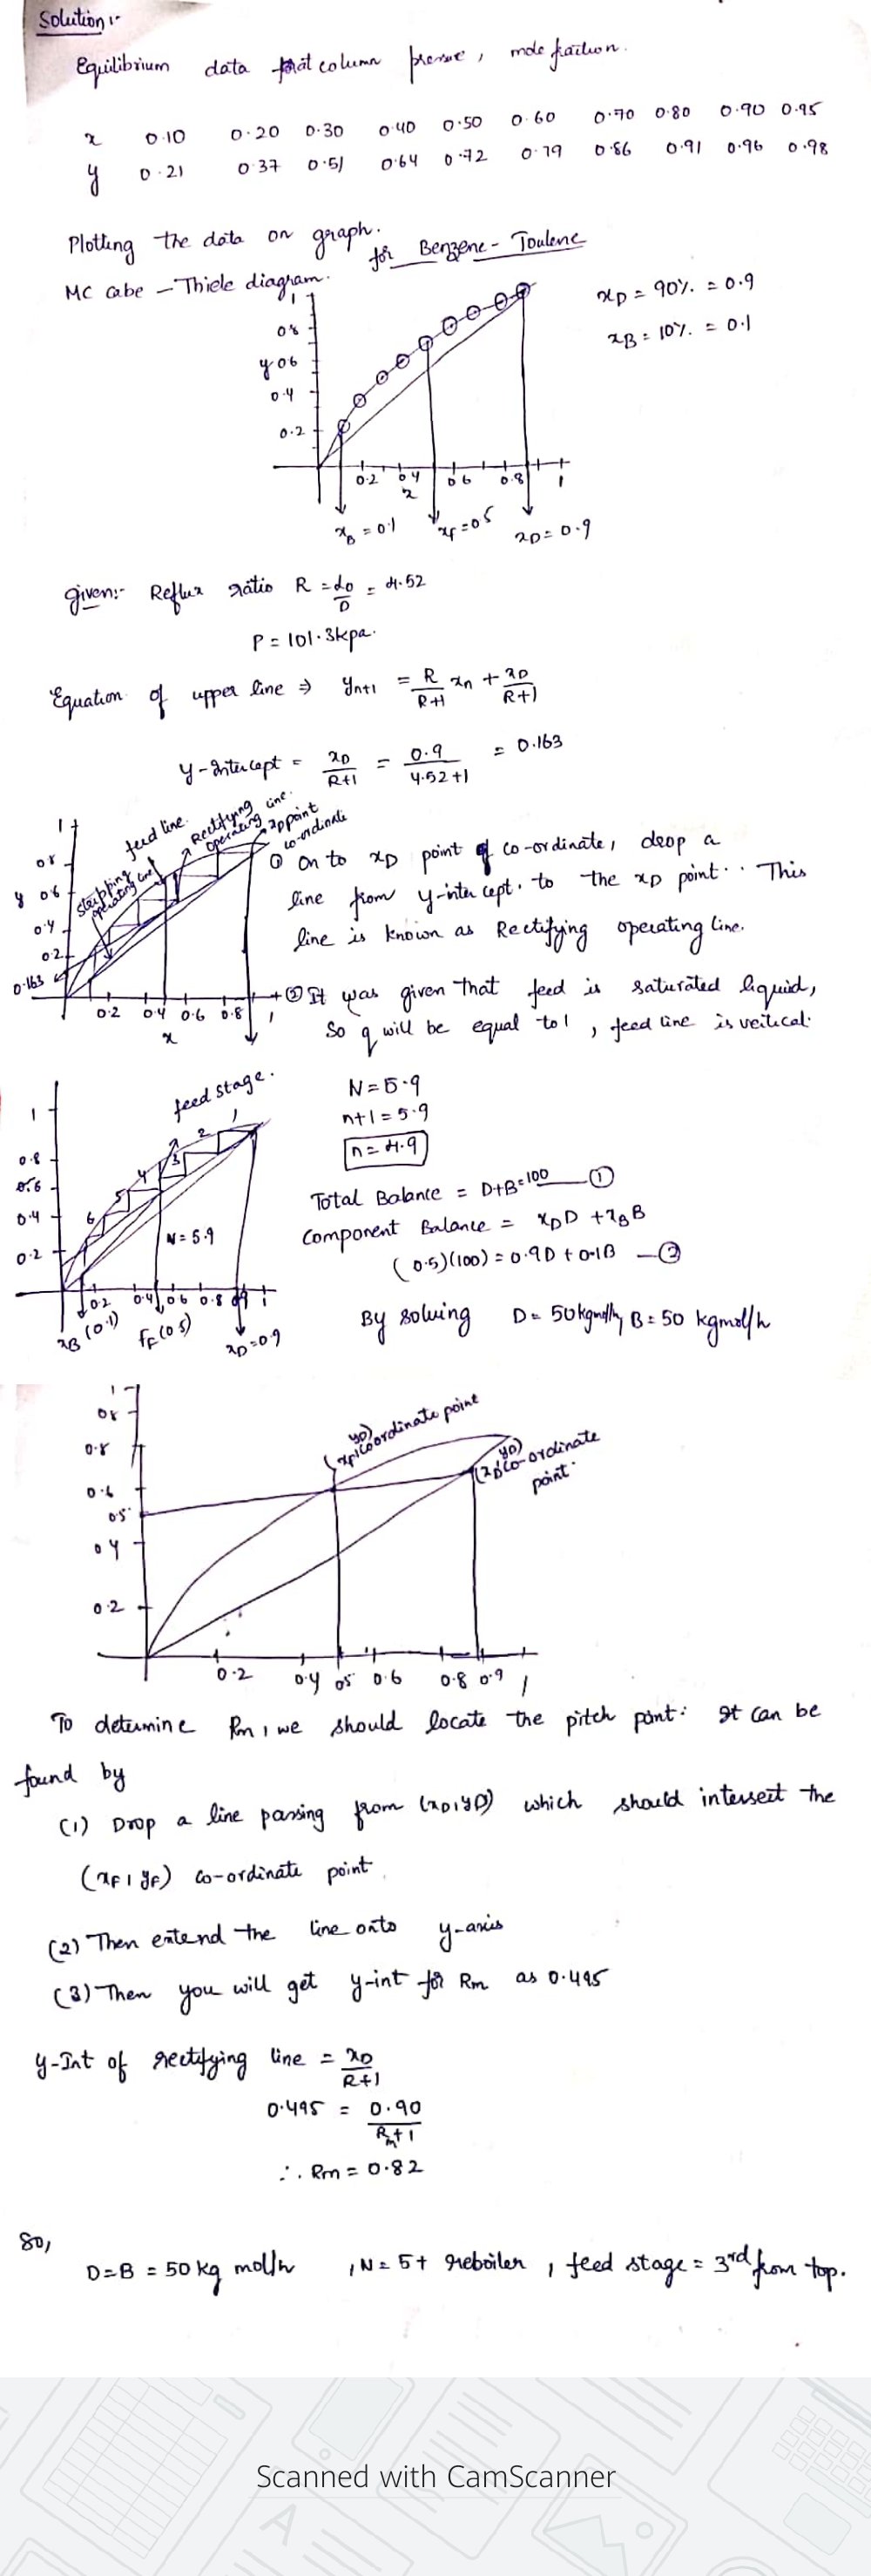 Solution:-
Equilibrium data at column presure, mole fraction.
x 0.10 0.20 0.30 0.40 0.50 0.60 0.70 0.80 0.90 0.95
y 0.21 0.37 0.51 0.64 0.72 0.79 0.86 0.91 0.96 0.98
Plotting the data on graph.
for Benzene - Toulene
MC cabe - Thiele diagram.
xD = 90% = 0.9
xB = 10% = 0.1
1
0.8
y 0.6
0.4
0.2
0.2 0.4 0.6 0.8 1
x
xB = 0.1 xf = 0.5 xD = 0.9
given:- Reflux ratio R = Lo/D = 4.52
P = 101.3kpa.
Equation of upper line ⇒ yn+1 = R/R+1 xn + xD/R+1
y-intercept = xD/R+1 = 0.9/4.52+1 = 0.163
feed line.
Rectifying operating line.
xD point co-ordinate
stripping operating line
1
0.8
y 0.6
0.4
0.2
0.163
0.2 0.4 0.6 0.8 1
x
① On to xD point of co-ordinate, drop a
line from y-inter cept. to the xD point. This
line is known as Rectifying operating line.
② It was given that feed is saturated liquid,
So q will be equal to 1, feed line is vertical.
feed stage.
1
0.8
0.6
0.4
0.2
1 2 3 4 5 6
N = 5.9
0.2 0.4 0.6 0.8 0.9 1
xB (0.1) fF (0.5) xD = 0.9
N = 5.9
n+1 = 5.9
n = 4.9
Total Balance = D+B = 100 — ①
Component Balance = xDD + xBB
(0.5)(100) = 0.9D + 0.1B — ②
By solving D = 50kgmol/h, B = 50 kgmol/h
1
0.8
0.8
0.6
0.5
0.4
0.2
0.2 0.4 0.5 0.6 0.8 0.9 1
(xF, yD) coordinate point
(xD, yD) co-ordinate point.
To determine Rm, we should locate the pitch point: It can be
found by
(1) Drop a line passing from (xD, yD) which should interseit the
(xF, yF) co-ordinate point.
(2) Then extend the line onto y-axis
(3) Then you will get y-int for Rm as 0.495
y-Int of rectifying line = xD/R+1
0.495 = 0.90/Rm+1
∴ Rm = 0.82
So,
D=B = 50 kg mol/h, N = 5 + reboiler, feed stage = 3rd from top.
Scanned with CamScanner